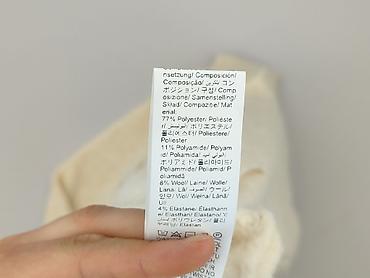 nsetzung/ Composición/
Composição/ コン
ポジション/ 구성/ Comp
osizione/ Samenstelling/
Skład/ Compoziție/ Mat
erial:
77% Polyester/ Poliéste
r/ ポリエステル/
폴리에스터/ Poliestere/
Poliester
11% Polyamide/ Polyam
id/ Poliamida/
ポリアミド/ 폴리아미드/
Poliammide/ Poliamid/ P
oliamidă
8% Wool/ Laine/ Wolle/
Lana/ Lã/ ウール/
양모/ Wol/ Wełna/ Lână/
4% Elastane/ Élasthann
e/ Elasthan/ Elastano/
ポリウレタン/
Elastan